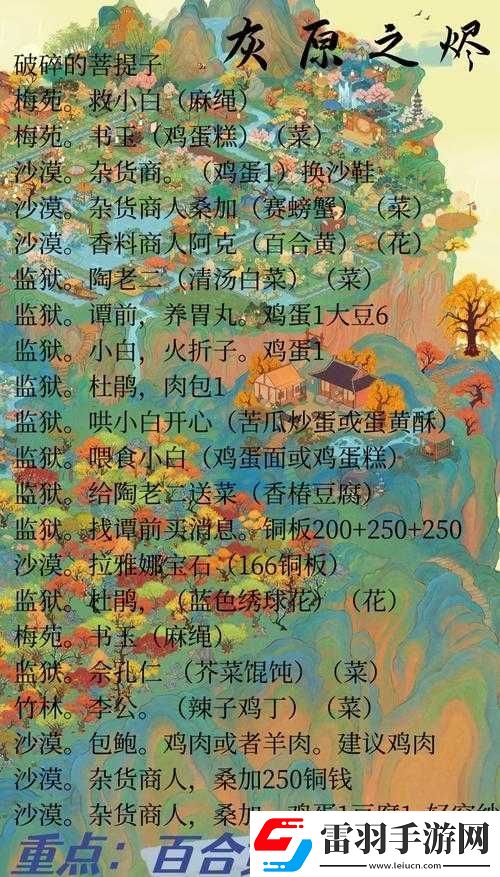 灰原之烬
破碎的菩提子
梅苑。救小白（麻绳）
梅苑。书玉（鸡蛋糕）（菜）
沙漠。杂货商。（鸡蛋1）换沙鞋
沙漠。杂货商人桑加（赛螃蟹）（菜）
沙漠。香料商人阿克（百合黄）（花）
监狱。陶老二（清汤白菜）（菜）
监狱。谭前，养胃丸。鸡蛋1大豆6
监狱。小白，火折子。鸡蛋1
监狱。杜鹃，肉包1
监狱。哄小白开心（苦瓜炒蛋或蛋黄酥）
监狱。喂食小白（鸡蛋面或鸡蛋糕）
监狱。给陶老二送菜（香椿豆腐）
监狱。找谭前买消息。铜板200+250+250
沙漠。拉雅娜宝石（166铜板）
监狱。杜鹃，（蓝色绣球花）（花）
梅苑。书玉（麻绳）
监狱。佘扎仁（芥菜馄饨）（菜）
竹林。李公。（辣子鸡丁）（菜）
沙漠。包鲍。鸡肉或者羊肉。建议鸡肉
沙漠。杂货商人，桑加250铜钱
沙漠。杂货商人，桑加。鸡蛋1豆腐1
重点：百合
雷羽手游网
www.leiucn.com